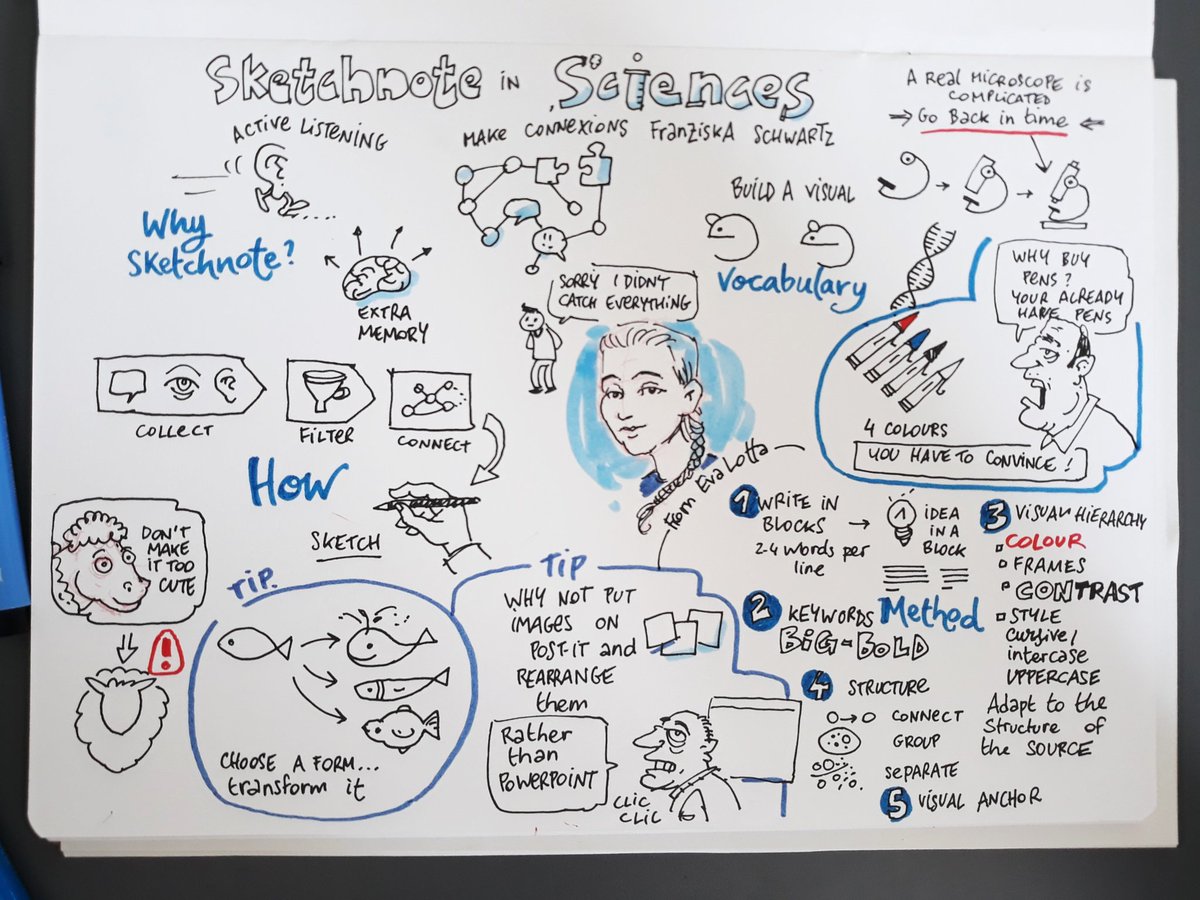 Sketchnote in Sciences
ACTIVE LISTENING
MAKE CONNEXIONS
FRANZISKA SCHWARTZ
A REAL MICROSCOPE IS
COMPLICATED
Go Back in time
Why
Sketchnote?
EXTRA
MEMORY
BUILD A VISUAL
Vocabulary
SORRY I DIDN'T
CATCH EVERYTHING
WHY BUY
PENS?
YOUR ALREADY
HAVE PENS
4 COLOURS
YOU HAVE TO CONVINCE!
COLLECT
FILTER
CONNECT
How
SKETCH
DON'T
MAKE
IT TOO
CUTE
!
TIP.
CHOOSE A FORM...
transform it
TIP
WHY NOT PUT
IMAGES ON
POST-IT and
REARRANGE
them
Rather
than
POWERPOINT
CLIC
CLIC
From Eva Lotta
Method
1 WRITE IN
BLOCKS
2-4 words per
line
1
IDEA
IN A
BLOCK
2 KEYWORDS
BIG-BOLD
3 VISUAL HIERARCHY
COLOUR
FRAMES
CONTRAST
STYLE
cursive/
intercase
UPPERCASE
Adapt to the
Structure of
the SOURCE
4 STRUCTURE
CONNECT
GROUP
SEPARATE
5 VISUAL ANCHOR